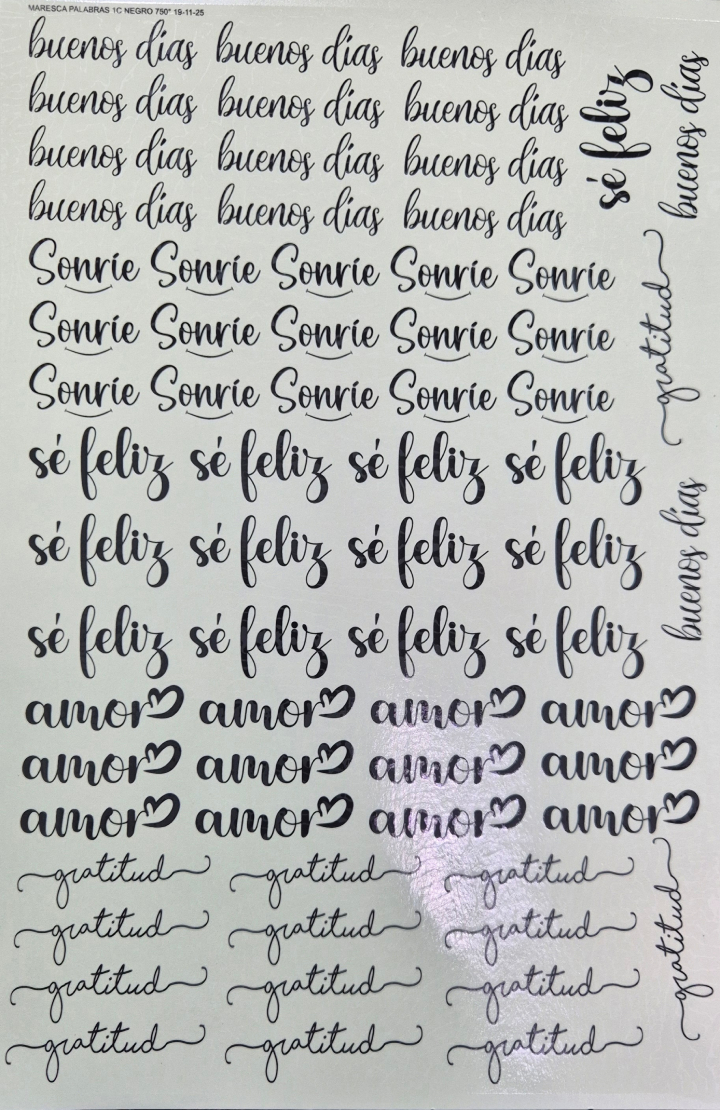 MARESCA PALABRAS 1C NEGRO 750° 19-11-25
buenos días buenos días buenos días
buenos días buenos días buenos días
buenos días buenos días buenos días
buenos días buenos días buenos días
sé feliz
buenos días
Sonríe Sonríe Sonríe Sonríe Sonríe
Sonríe Sonríe Sonríe Sonríe Sonríe
Sonríe Sonríe Sonríe Sonríe Sonríe
gratitud
sé feliz sé feliz sé feliz sé feliz
sé feliz sé feliz sé feliz sé feliz
sé feliz sé feliz sé feliz sé feliz
buenos días
amor amor amor amor
amor amor amor amor
amor amor amor amor
gratitud gratitud gratitud
gratitud gratitud gratitud
gratitud gratitud gratitud
gratitud gratitud gratitud
gratitud